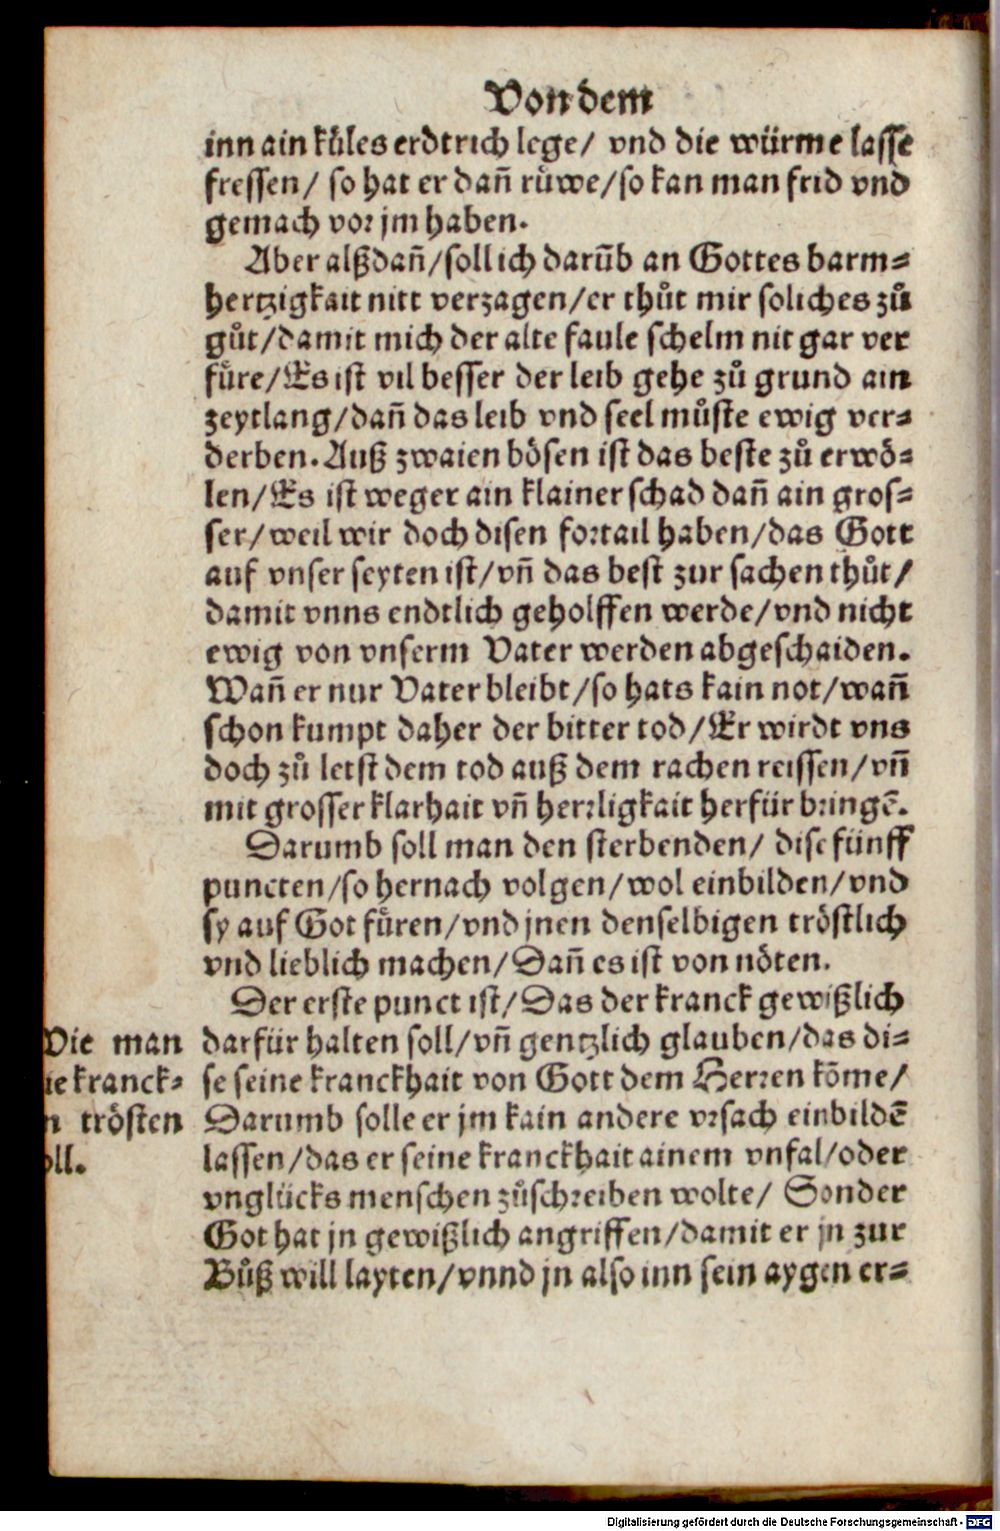 Von dem
inn ain kůles erdtrich lege/ vnd die würme lasse
fressen/ so hat er dañ růwe/so kan man frid vnd
gemach vor jm haben.
Aber alßdañ/soll ich darũb an Gottes barm-
hertzigkait nitt verzagen/er thůt mir soliches zů
gůt/damit mich der alte faule schelm nit gar ver
fůre/Es ist vil besser der leib gehe zů grund ain
zeytlang/dañ das leib vnd seel můste ewig ver-
derben. Auß zwaien bösen ist das beste zů erwö-
len/Es ist weger ain klainer schad dañ ain gros-
ser/weil wir doch disen fortail haben/das Gott
auf vnser seyten ist/vñ das best zur sachen thůt/
damit vnns endtlich geholffen werde/vnd nicht
ewig von vnserm Vater werden abgeschaiden.
Wañ er nur Vater bleibt/so hats kain not/wañ
schon kumpt daher der bitter tod/Er wirdt vns
doch zů letst dem tod auß dem rachen reissen/vñ
mit grosser klarhait vñ herrligkait herfür bringẽ.
Darumb soll man den sterbenden/ dise fünff
puncten/so hernach volgen/wol einbilden/vnd
sy auf Got fůren/vnd jnen denselbigen tröstlich
vnd lieblich machen/Dañ es ist von nöten.
Der erste punct ist/Das der kranck gewißlich
darfür halten soll/vñ gentzlich glauben/das di-
se seine kranckhait von Gott dem Herren kõme/
Darumb solle er jm kain andere vrsach einbildẽ
lassen/das er seine kranckhait ainem vnfal/oder
vnglücks menschen zůschreiben wolte/ Sonder
Got hat jn gewißlich angriffen/damit er jn zur
Bůß will layten/vnnd jn also inn sein aygen er-
Wie man
ie kranck-
n trösten
oll.
Digitalisierung gefördert durch die Deutsche Forschungsgemeinschaft - DFG